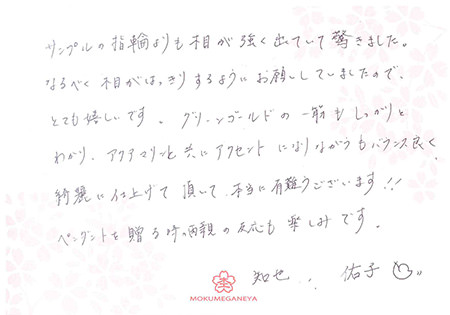 サンプルの指輪よりも木目が強く出ていて驚きました。
なるべく木目がはっきりするようにお願いしていましたので、
とても嬉しいです。グリーンゴールドの一筋もしっかりと
わかり、アクアマリンと共にアクセントになりながらもバランス良く
綺麗に仕上げて頂いて、本当に有難うございます!!
ペンダントを贈る時の両親の反応も楽しみです。
知也、佑子
MOKUMEGANEYA